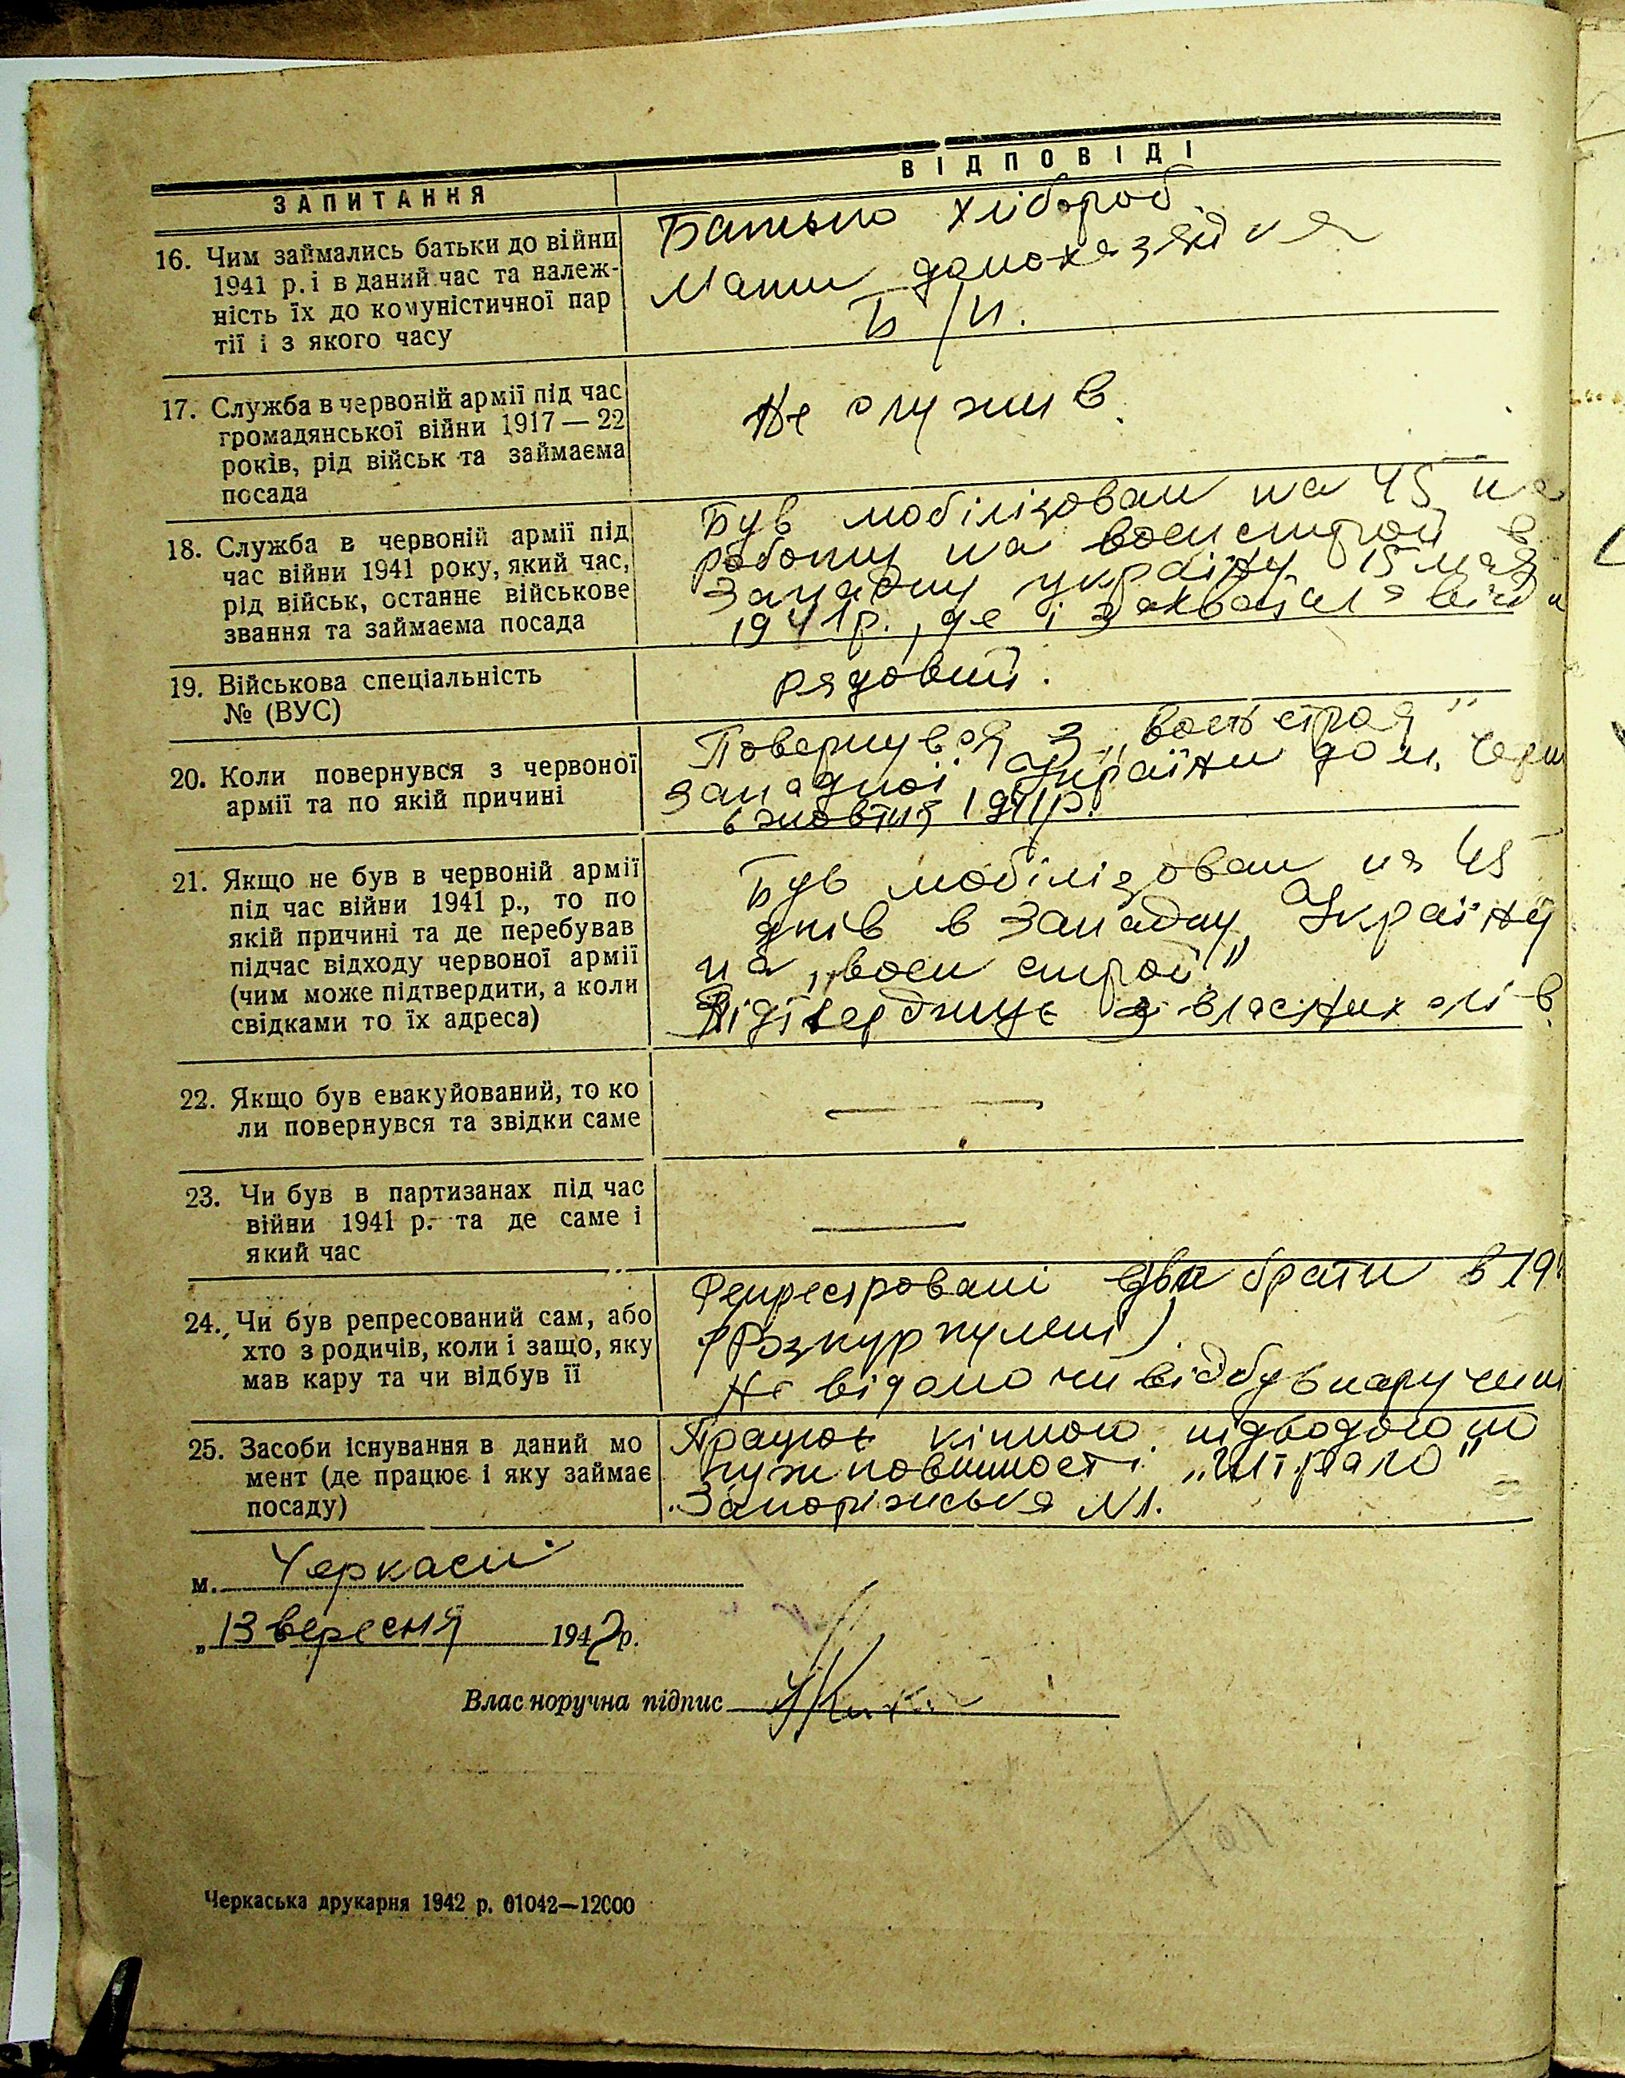 ЗАПИТАННЯ
ВІДПОВІДІ
16. Чим займались батьки до війни
1941 р. і в даний час та належ-
ність їх до комуністичної пар
тії і з якого часу
Батько хлібороб.
Мати домохазяйка
Б/П.
17. Служба в червоній армії під час
громадянської війни 1917 — 22
років, рід військ та займаєма
посада
Не служив.
18. Служба в червоній армії під
час війни 1941 року, який час,
рід військ, останнє військове
звання та займаєма посада
Був мобілізован на 45 на
роботу на воєнстрой в
Западну україну 15 мая
1941 р., де і захватила війн
19. Військова спеціальність
№ (ВУС)
рядовий.
20. Коли повернувся з червоної
армії та по якій причині
Повернувся з „воєнстроя"
западної України до м. Черк
6 жовтня 1941 р.
21. Якщо не був в червоній армії
під час війни 1941 р., то по
якій причині та де перебував
підчас відходу червоної армії
(чим може підтвердити, а коли
свідками то їх адреса)
Був мобілізован на 45
днів в Западну Україну
на „воєн строй"
Підтверджує з власних слів.
22. Якщо був евакуйований, то ко
ли повернувся та звідки саме
23. Чи був в партизанах під час
війни 1941 р. та де саме і
який час
24. Чи був репресований сам, або
хто з родичів, коли і защо, яку
мав кару та чи відбув її
Репресровані два брати в 19
(Розкуркулені)
Не відомо чи відбув кару чи ні
25. Засоби існування в даний мо
мент (де працює і яку займає
посаду)
Працює кінною підводою по
гужповинності „Штрало"
Запоріжська №1.
м. Черкаси
„13 вересня 1942 р.
Власноручна підпис
Черкаська друкарня 1942 р. 01042—12000